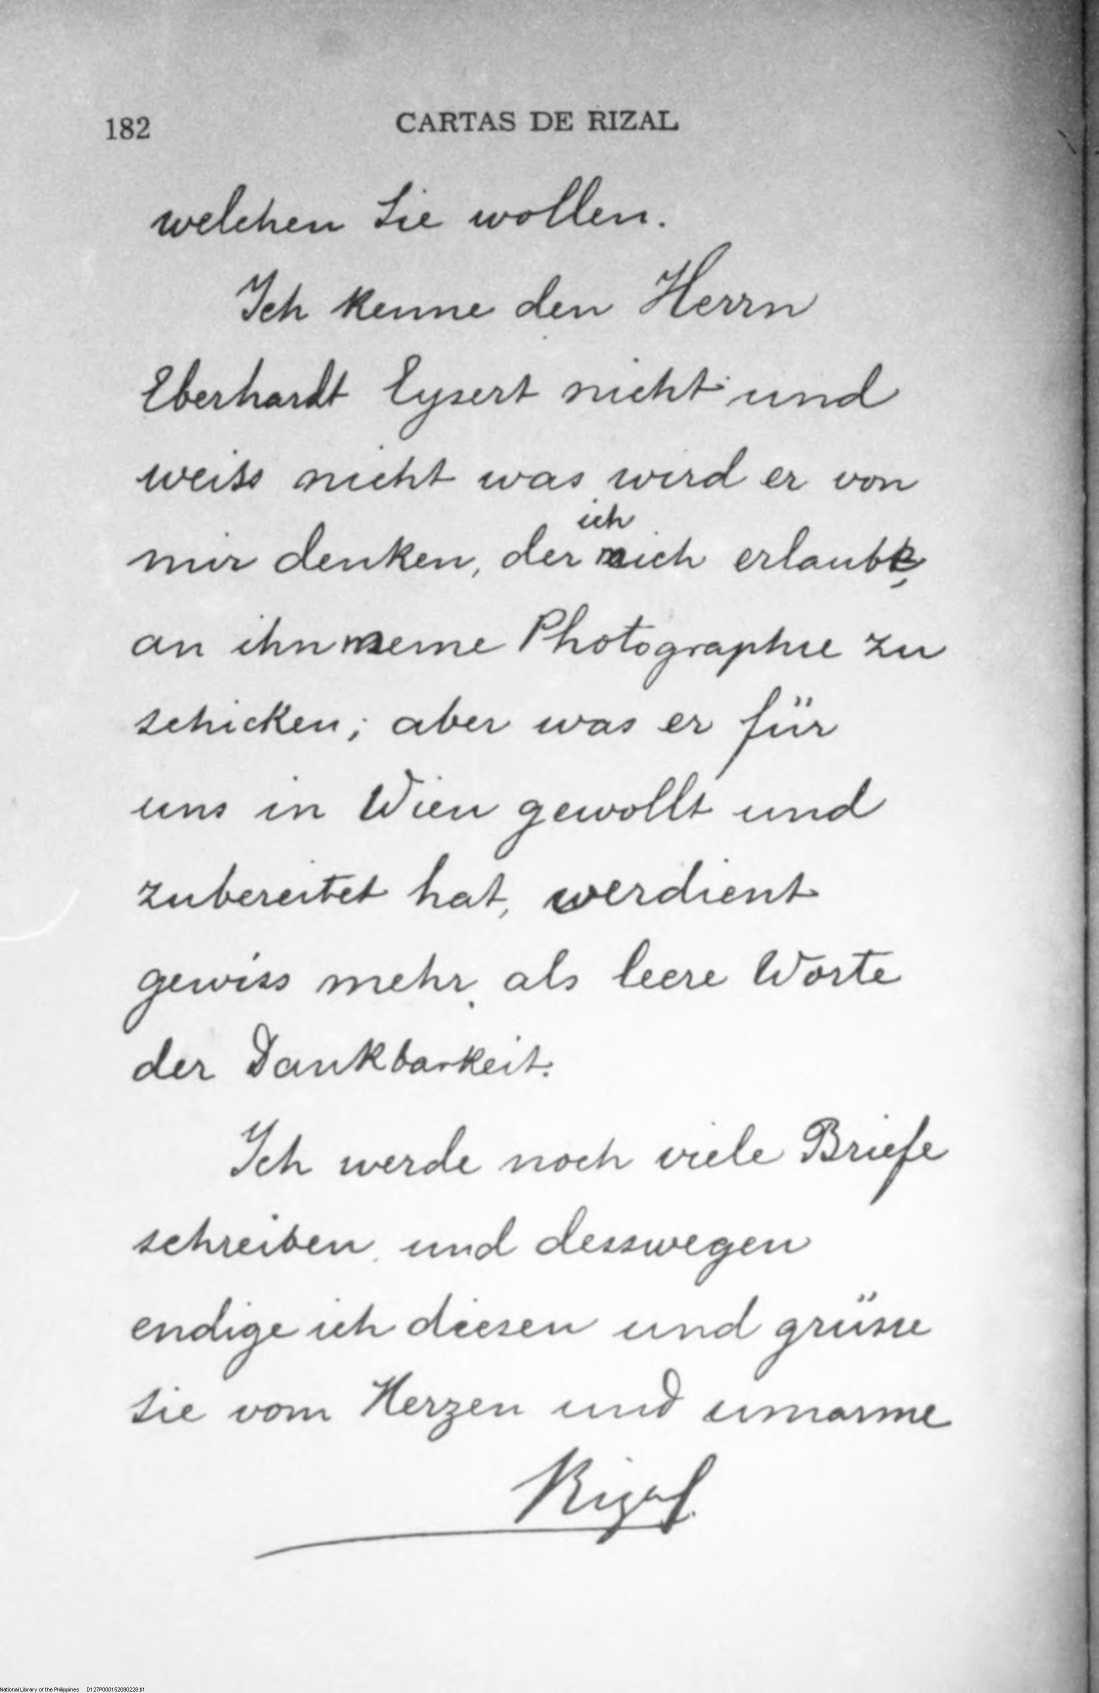 182 CARTAS DE RIZAL
welchen Sie wollen.
Ich kenne den Herrn
Eberhardt Eysert nicht und
weiss nicht was wird er von
ich
mir denken, der mich erlaube,
an ihn meine Photographie zu
schicken; aber was er für
uns in Wien gewollt und
zubereitet hat, werdient
gewiss mehr als leere Worte
der Dankbarkeit.
Ich werde noch viele Briefe
schreiben und desswegen
endige ich diesen und grüsse
Sie vom Herzen und umarme
Rizal
National Library of the Philippines